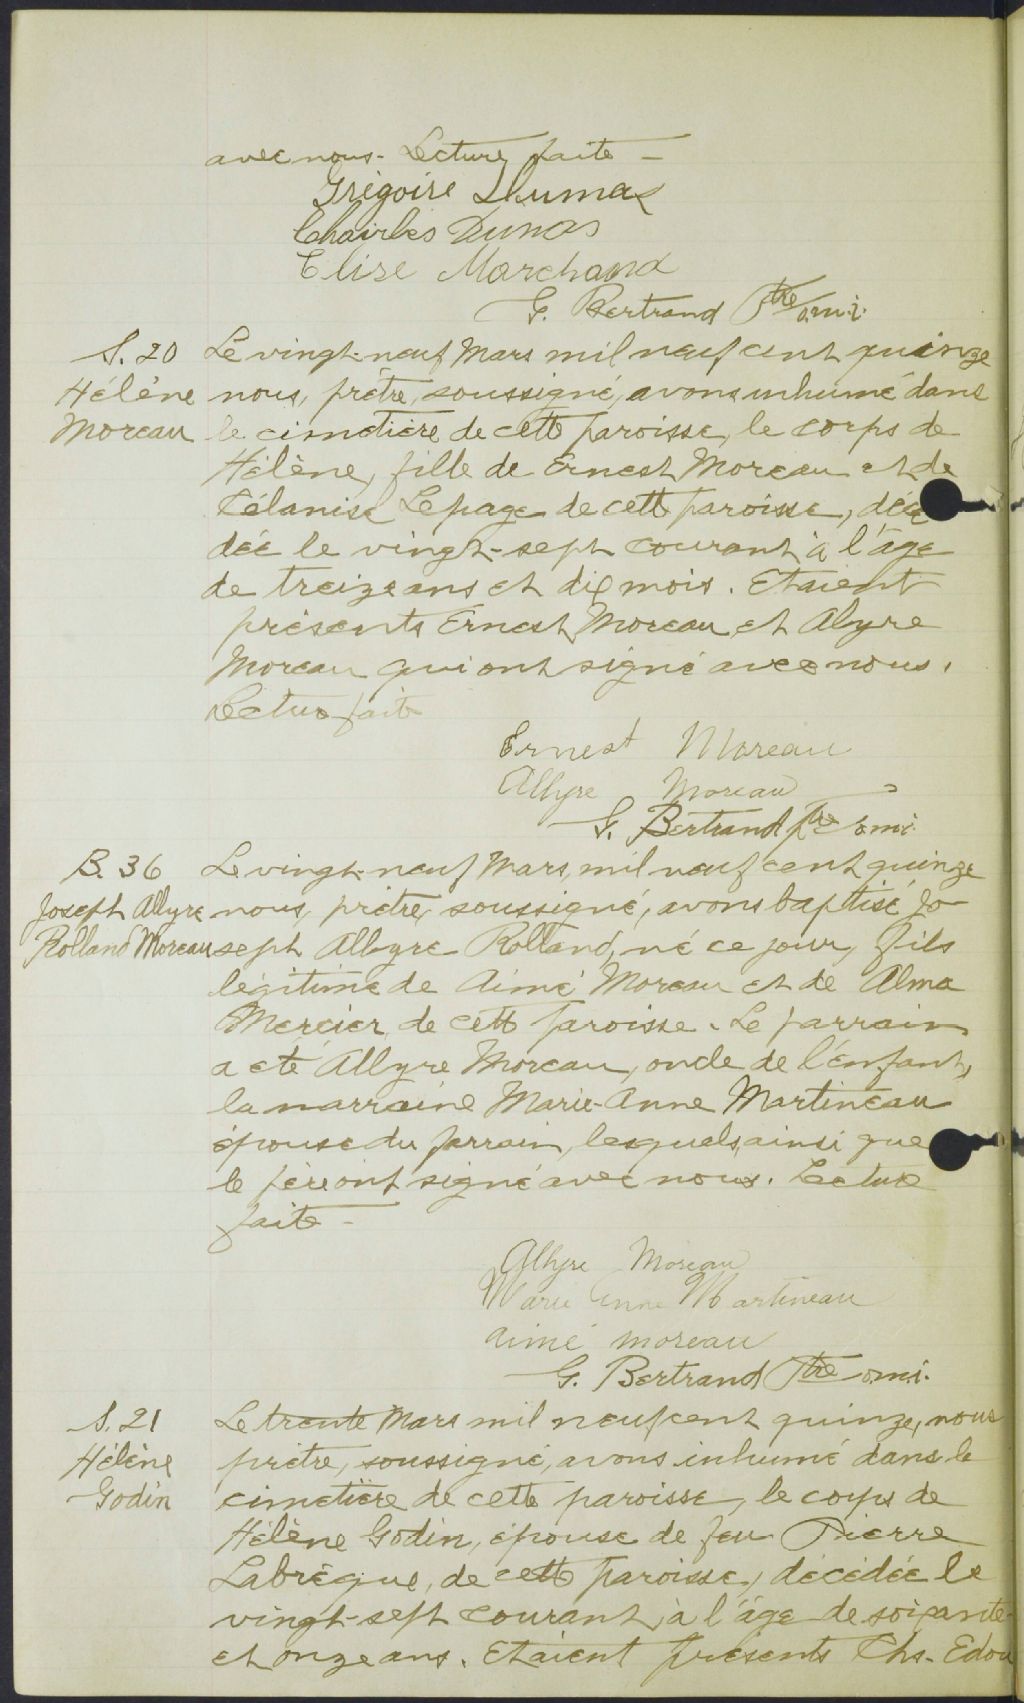 avec nous. Lecture faite -
Grégoire Dumas
Charles Dumas
Elise Marchand
G. Bertrand Ptre o.m.i.
S. 20
Hélène
Moreau
Le vingt-neuf Mars mil neuf cent quinze
nous, prêtre, soussigné, avons inhumé dans
le cimetière de cette paroisse, le corps de
Hélène, fille de Ernest Moreau et de
Célanise Lepage de cette paroisse, décé
dée le vingt-sept courant à l'âge
de treize ans et dix mois. Etaient
présents Ernest Moreau et Alyre
Moreau qui ont signé avec nous.
Lecture faite
Ernest Moreau
Allyre Moreau
G. Bertrand ptre o.m.i.
B. 36
Joseph Allyre
Rolland Moreau
Le vingt-neuf Mars, mil neuf cent quinze
nous, prêtre, soussigné, avons baptisé Jo-
seph Allyre Rolland, né ce jour, fils
légitime de Aimé Moreau et de Alma
Mercier de cette paroisse. Le parrain
a été Allyre Moreau, oncle de l'enfant,
la marraine Marie-Anne Martineau
épouse du parrain, lesquels ainsi que
le père ont signé avec nous. Lecture
faite -
Allyre Moreau
Marie Anne Martineau
Aimé Moreau
G. Bertrand Ptre o.m.i.
S. 21
Hélène
Godin
Le trente Mars mil neuf cent quinze, nous
prêtre, soussigné, avons inhumé dans le
cimetière de cette paroisse, le corps de
Hélène Godin, épouse de feu Pierre
Labrègue, de cette paroisse, décédée le
vingt-sept courant, à l'âge de soixante-
et onze ans. Etaient présents Chs. Edou